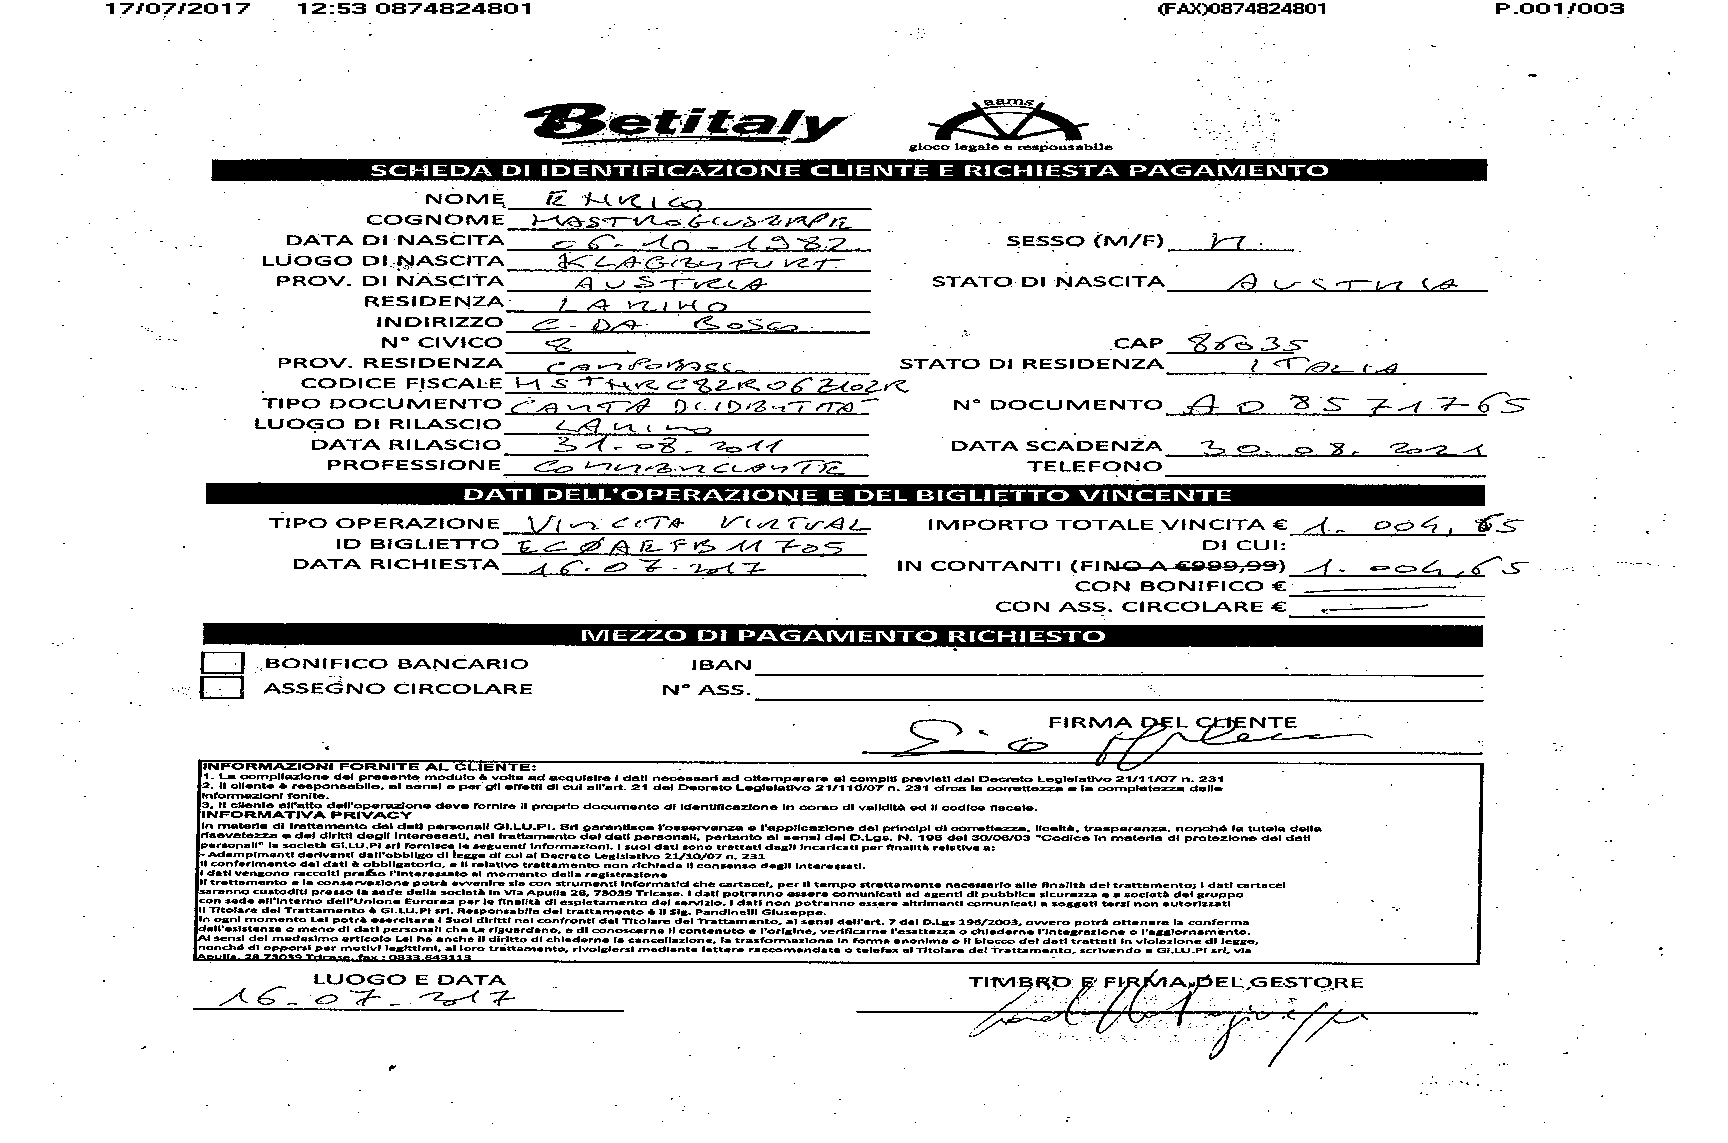 17/07/2017 12:53 0874824801 (FAX)0874824801 P.001/003
Betitaly
aams
gioco legale e responsabile
SCHEDA DI IDENTIFICAZIONE CLIENTE E RICHIESTA PAGAMENTO
NOME ENRICO
COGNOME MASTROGIUSEPPE
DATA DI NASCITA 06-10-1982 SESSO (M/F) M.
LUOGO DI NASCITA KLAGENFURT
PROV. DI NASCITA AUSTRIA STATO DI NASCITA AUSTRIA
RESIDENZA LARINO
INDIRIZZO C-DA BOSCO
N° CIVICO 8 CAP 86035
PROV. RESIDENZA CAMPOBASSO STATO DI RESIDENZA ITALIA
CODICE FISCALE MSTNRC82R06Z102R
TIPO DOCUMENTO CARTA DI IDENTITA' N° DOCUMENTO AO 8571765
LUOGO DI RILASCIO LARINO
DATA RILASCIO 31-08-2011 DATA SCADENZA 30.08.2021
PROFESSIONE COMMERCIANTE TELEFONO
DATI DELL'OPERAZIONE E DEL BIGLIETTO VINCENTE
TIPO OPERAZIONE VINCITA VIRTUAL IMPORTO TOTALE VINCITA € 1.004,65
ID BIGLIETTO EC0AEFB11705 DI CUI:
DATA RICHIESTA 16.07.2017 IN CONTANTI (FINO A €999,99) 1.004,65
CON BONIFICO €
CON ASS. CIRCOLARE €
MEZZO DI PAGAMENTO RICHIESTO
BONIFICO BANCARIO IBAN
ASSEGNO CIRCOLARE N° ASS.
FIRMA DEL CLIENTE
INFORMAZIONI FORNITE AL CLIENTE:
1. La compilazione del presente modulo è volta ad acquisire i dati necessari ad ottemperare ai compiti previsti dal Decreto Legislativo 21/11/07 n. 231
2. Il cliente è responsabile, ai sensi e per gli effetti di cui all'art. 21 del Decreto Legislativo 21/110/07 n. 231 circa la correttezza e la completezza delle
informazioni fonite.
3. Il cliente all'atto dell'operazione deve fornire il proprio documento di identificazione in corso di validità ed il codice fiscale.
INFORMATIVA PRIVACY
In materia di trattamento dei dati personali GI.LU.PI. Srl garantisce l'osservanza e l'applicazione dei principi di correttezza, liceità, trasparenza, nonché la tutela della
riservatezza e dei diritti degli interessati, nel trattamento dei dati personali, pertanto ai sensi del D.Lgs. N. 196 del 30/06/03 "Codice in materia di protezione dei dati
personali" la società GI.LU.PI srl fornisce le seguenti informazioni. I suoi dati sono trattati dagli incaricati per finalità relative a:
- Adempimenti derivanti dall'obbligo di legge di cui al Decreto Legislativo 21/10/07 n. 231
Il conferimento dei dati è obbligatorio, e il relativo trattamento non richiede il consenso degli interessati.
I dati vengono raccolti presso l'interessato al momento della registrazione
Il trattamento e la conservazione potrà avvenire sia con strumenti informatici che cartacei, per il tempo strettamente necessario alle finalità del trattamento; i dati cartacei
saranno custoditi presso la sede della società in Via Apulia 28, 73039 Tricase. I dati potranno essere comunicati ad agenti di pubblica sicurezza e a società del gruppo
con sede all'interno dell'Unione Europea per le finalità di espletamento del servizio. I dati non potranno essere altrimenti comunicati a soggetti terzi non autorizzati
Il Titolare del Trattamento è GI.LU.PI srl. Responsabile del trattamento è il Sig. Pandinelli Giuseppe.
In ogni momento Lei potrà esercitare i Suoi diritti nei confronti del Titolare del Trattamento, ai sensi dell'art. 7 del D.Lgs 196/2003, ovvero potrà ottenere la conferma
dell'esistenza o meno di dati personali che La riguardano, e di conoscerne il contenuto e l'origine, verificarne l'esattezza o chiederne l'integrazione o l'aggiornamento.
Ai sensi del medesimo articolo Lei ha anche il diritto di chiederne la cancellazione, la trasformazione in forma anonima o il blocco dei dati trattati in violazione di legge,
nonché di opporsi per motivi legittimi, al loro trattamento, rivolgersi mediante lettera raccomandata o telefax al Titolare del Trattamento, scrivendo a GI.LU.PI srl, via
Apulia, 28 73039 Tricase, fax : 0833.643113
LUOGO E DATA TIMBRO E FIRMA DEL GESTORE
16-07-2017